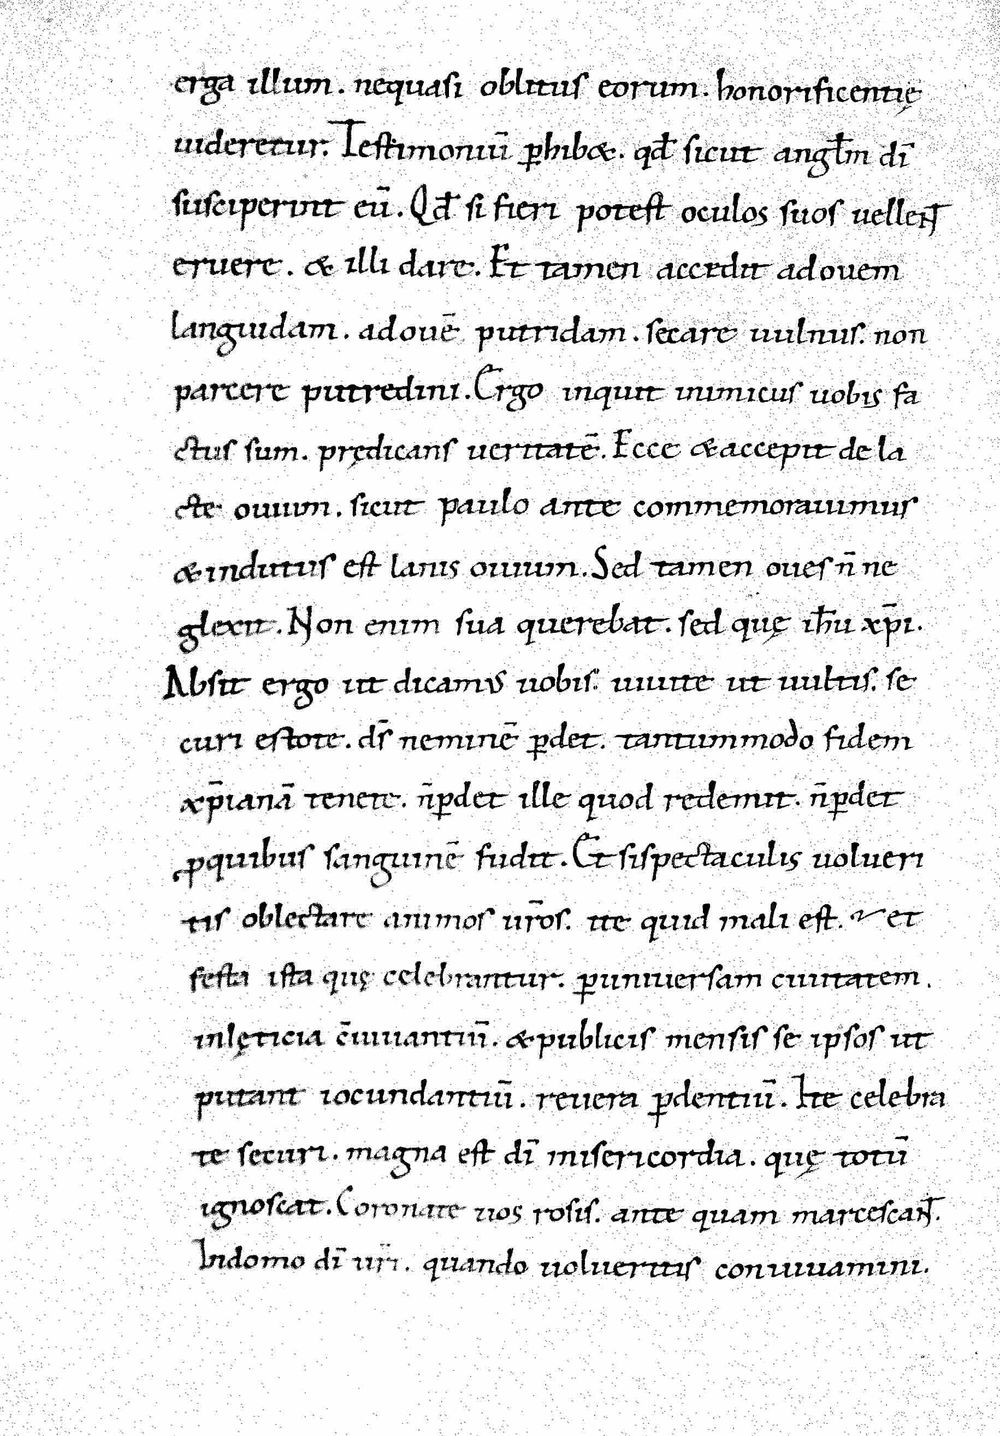 erga illum. nequasi oblitus eorum. honorificentię
uideretur. Testimoniū ꝑhibæ. qđ sicut angłm dī
susciperint eū. Qđ si fieri potest oculos suos uellent
eruere. & illi dare. Et tamen accedit adouem
languidam. adouē putridam. secare uulnus. non
parcere putredini. Ergo inquit inimicus uobis fa
ctus sum. prędicans ueritatē. Ecce &accepit de la
cte ouium. sicut paulo ante commemorauimus
&indutus est lanis ouium. Sed tamen oues n̄ ne
glexit. Non enim sua querebat. sed quę ihū xp̄i.
Absit ergo ut dicamus uobis. uiuite ut uultis. se
curi estote. ds̄ neminē ꝑdet. tantummodo fidem
xp̄ianā tenete. n̄ꝑdet ille quod redemit. n̄ꝑdet
ꝓquibus sanguinē fudit. Et sispectaculis uolueri
tis oblectare animos ur̄os. ite quid mali est. et
festa ista quę celebrantur. ꝑuniuersam ciuitatem.
inlęticia c̄uiuantiū. &publicis mensis se ipsos ut
putant iocundantiū. reuera ꝑdentiū. Ite celebra
te securi. magna est dī misericordia. quę totū
ignoscat. Coronate uos rosis. ante quam marcescant.
Indomo dī ur̄i. quando uolueritis conuiuamini.